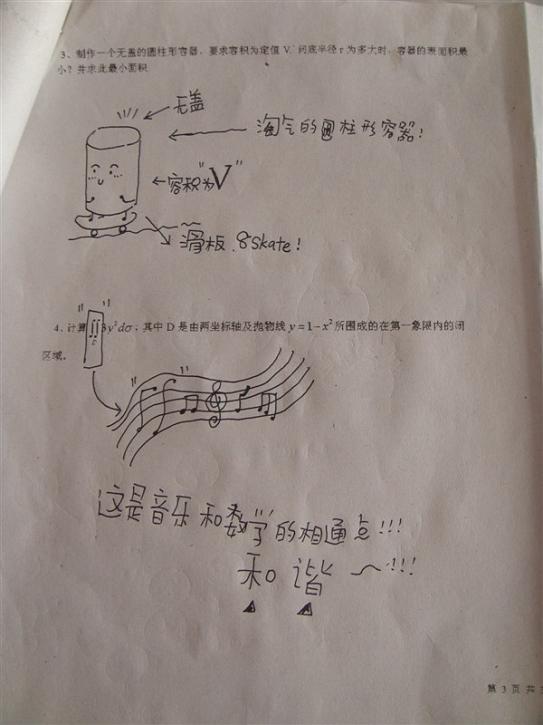 3、制作一个无盖的圆柱形容器，要求容积为定值 V，问底半径 r 为多大时，容器的表面积最
小？并求此最小面积.
无盖
淘气的圆柱形容器!
容积为"V"
滑板 Skate!
4、计算 3y²dσ，其中 D 是由两坐标轴及抛物线 y = 1 - x² 所围成的在第一象限内的闭
区域。
这是音乐和数学的相通点!!!
和谐~!!!
第 3 页 共